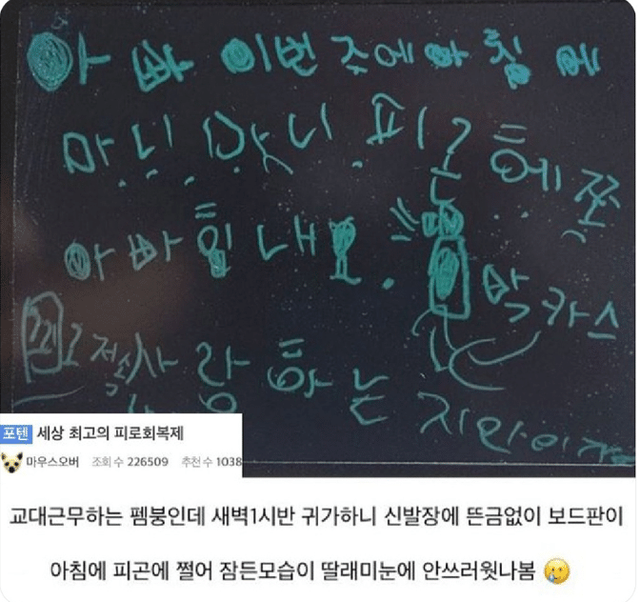 아빠 이번 주에 아침에
마니 마니 피로헤쪄
아빠 힘내요.
박카스
사랑하는
포텐 세상 최고의 피로회복제
마우스오버 조회 수 226509 추천 수 1038
교대근무하는 펨붕인데 새벽1시반 귀가하니 신발장에 뜬금없이 보드판이
아침에 피곤에 쩔어 잠든모습이 딸래미눈에 안쓰러웟나봄